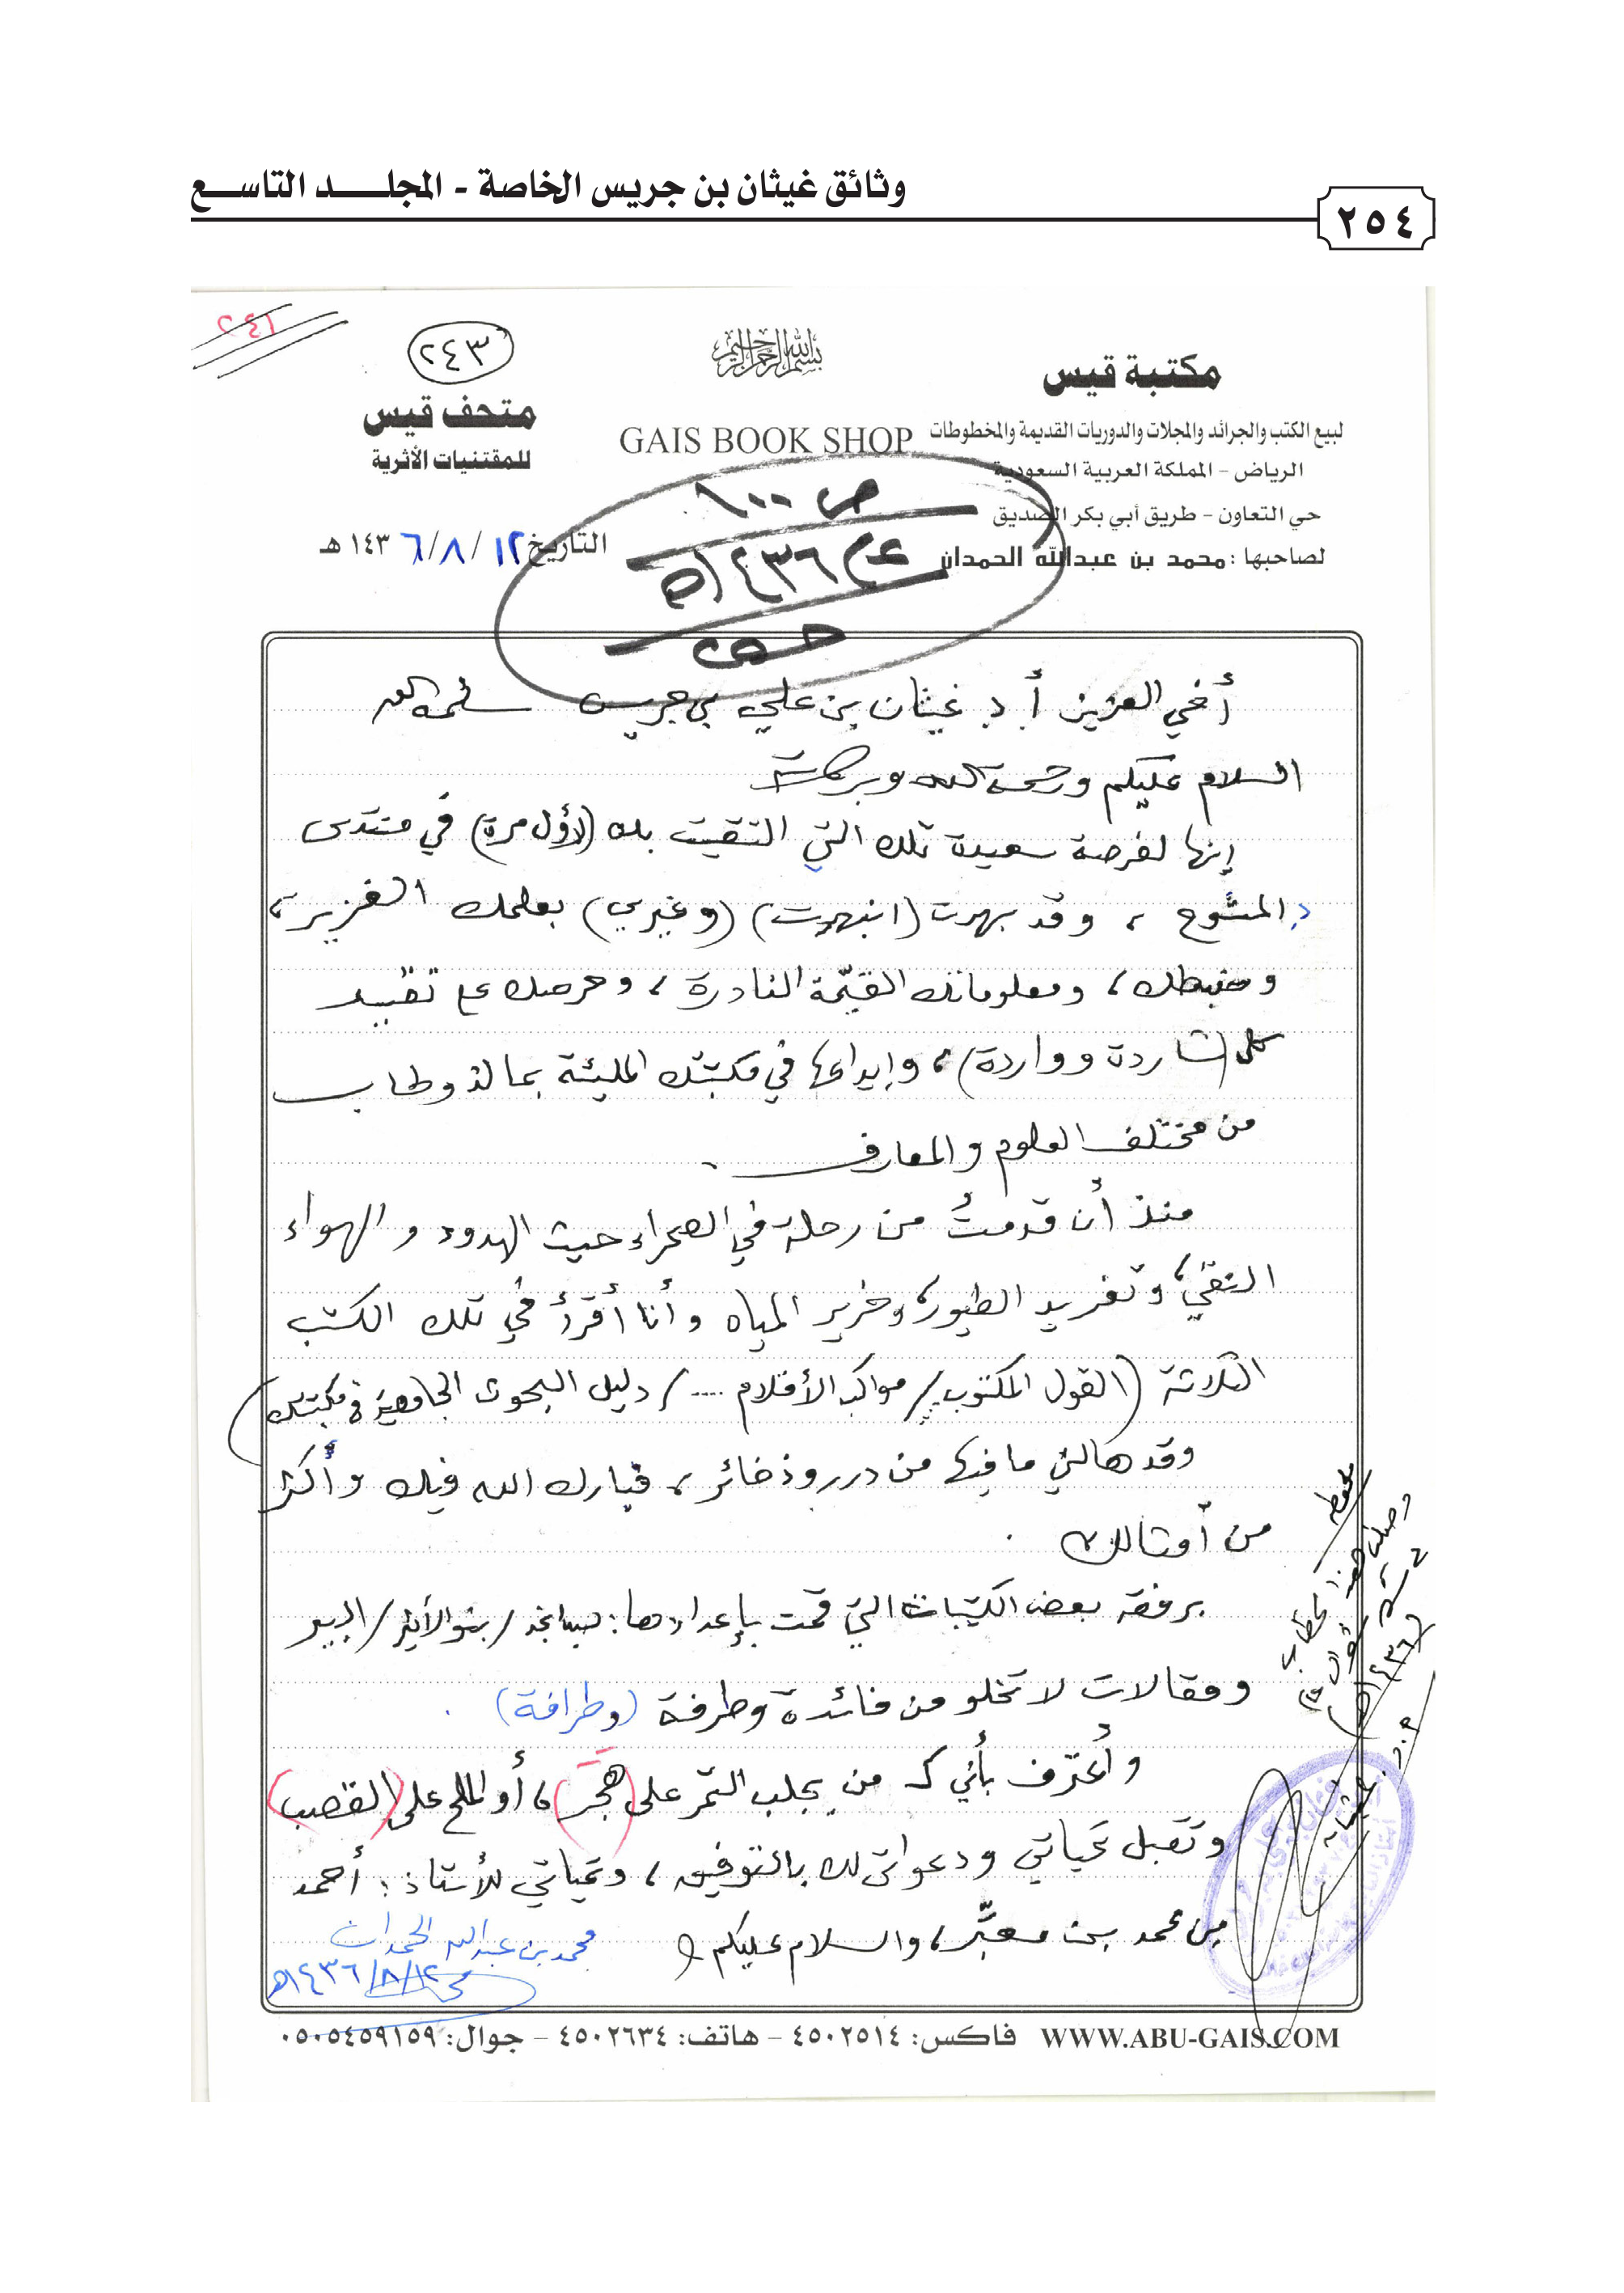 وثائق غيثان بن جريس الخاصة - المجلـــد التاســـع
٢٥٤
٢٤١
٢٤٣
بسم الله الرحمن الرحيم
مكتبة قيس
متحف قيس
GAIS BOOK SHOP
لبيع الكتب والجرائد والمجلات والدوريات القديمة والمخطوطات
للمقتنيات الأثرية
الرياض - المملكة العربية السعودية
حي التعاون - طريق أبي بكر الصديق
لصاحبها : محمد بن عبدالله الحمدان
التاريخ ١٢ / ٨ / ١٤٣٦ هـ
ص ١٠٠
١٤٣٦هـ
أخي العزيز أ. د. غيثان بن علي بن جريس سلمه الله
السلام عليكم ورحمة الله وبركاته
إنها لفرصة سعيدة تلك التي التقيت بك (لأول مرة) في منتدى
د. المشوح ، وقد بهرت (انبهرت) (وغيري) بعلمك الغزير،
وضبطك ، ومعلوماتك القيّمة النادرة ، وحرصك على تقييد
كل (شاردة وواردة) ، وإيداعها في مكتبتك المليئة بما لذ وطاب
من مختلف العلوم والمعارف .
منذ أن قدمتُ من رحلة في الصحراء حيث الهدوء والهواء
النقيّ، وتغريد الطيور، وخرير المياه وأنا أقرأ في تلك الكتب
الثلاثة (القول المكتوب../ مواكب الأقلام .... / دليل البحوث الجامعية في مكتبتك)
وقد هالني ما فيها من درر وذخائر ، فبارك الله فيك وأكثر
من أمثالك .
برفقه بعض الكتيّبات التي قمت بإعدادها : صبا نجد / بنو الأثير / البير
ومقالات لا تخلو من فائدة وطرفة (وطرافة) .
وأعترف بأني كـ من يجلب التمر على (هَجَر) ، أو الملح على (القصب)
وتقبل تحياتي ودعواتي لك بالتوفيق ، وتحياتي للأستاذ : أحمد
بن محمد بن معبّر ، والسلام عليكم
محمد بن عبدالله الحمدان
١٤٣٦/٨/١٢هـ
وصلت هذا الخطاب
WWW.ABU-GAIS.COM فاكس: ٤٥٠٢٥١٤ - هاتف: ٤٥٠٢٦٣٤ - جوال: ٠٥٠٥٤٥٩١٥٩